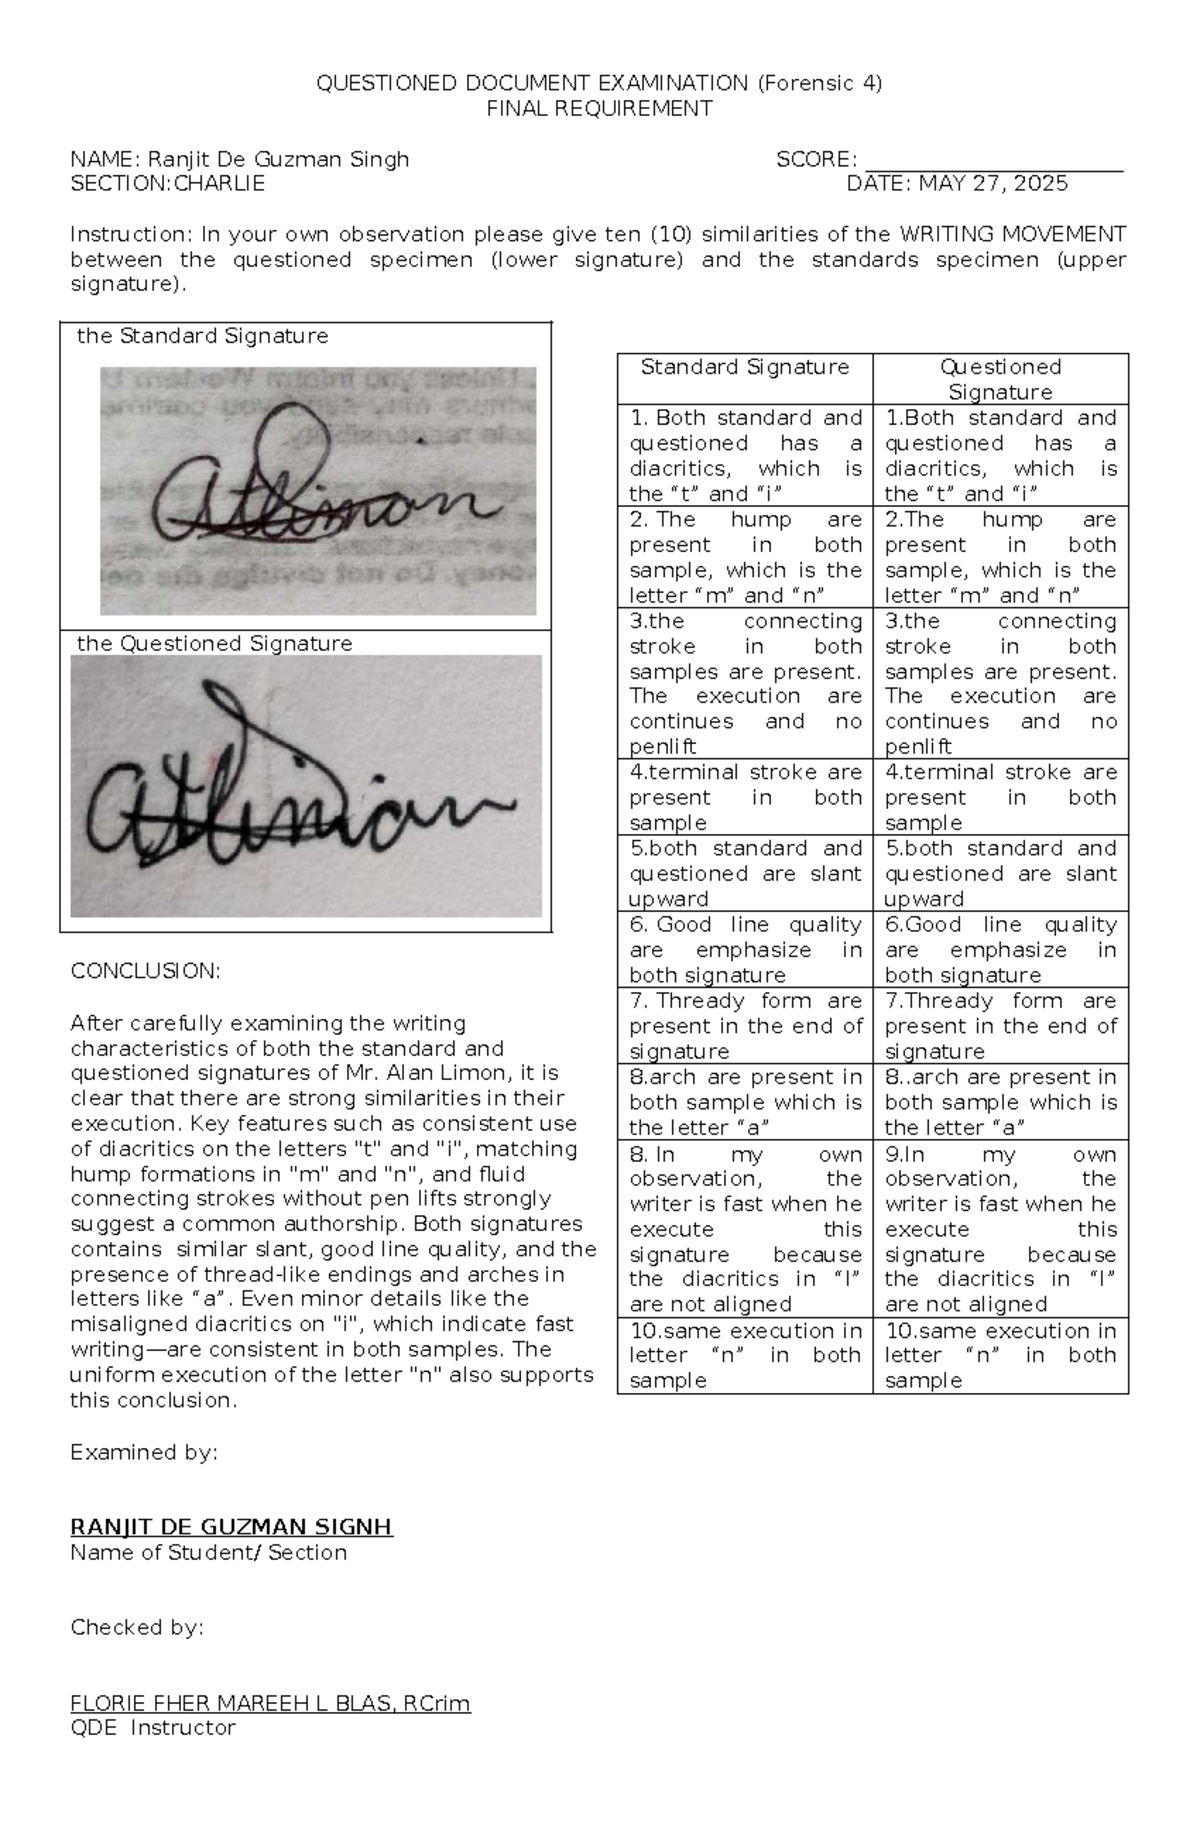 QUESTIONED DOCUMENT EXAMINATION (Forensic 4)
FINAL REQUIREMENT
NAME: Ranjit De Guzman Singh
SCORE: ______________________
SECTION:CHARLIE
DATE: MAY 27, 2025
Instruction: In your own observation please give ten (10) similarities of the WRITING MOVEMENT
between the questioned specimen (lower signature) and the standards specimen (upper
signature).
the Standard Signature
the Questioned Signature
CONCLUSION:
After carefully examining the writing
characteristics of both the standard and
questioned signatures of Mr. Alan Limon, it is
clear that there are strong similarities in their
execution. Key features such as consistent use
of diacritics on the letters "t" and "i", matching
hump formations in "m" and "n", and fluid
connecting strokes without pen lifts strongly
suggest a common authorship. Both signatures
contains  similar slant, good line quality, and the
presence of thread-like endings and arches in
letters like “a”. Even minor details like the
misaligned diacritics on "i", which indicate fast
writing—are consistent in both samples. The
uniform execution of the letter "n" also supports
this conclusion.
Examined by:
RANJIT DE GUZMAN SIGNH
Name of Student/ Section
Checked by:
FLORIE FHER MAREEH L BLAS, RCrim
QDE  Instructor
Standard Signature
Questioned
Signature
1. Both standard and
questioned has a
diacritics, which is
the “t” and “i”
1.Both standard and
questioned has a
diacritics, which is
the “t” and “i”
2. The hump are
present in both
sample, which is the
letter “m” and “n”
2.The hump are
present in both
sample, which is the
letter “m” and “n”
3.the connecting
stroke in both
samples are present.
The execution are
continues and no
penlift
3.the connecting
stroke in both
samples are present.
The execution are
continues and no
penlift
4.terminal stroke are
present in both
sample
4.terminal stroke are
present in both
sample
5.both standard and
questioned are slant
upward
5.both standard and
questioned are slant
upward
6. Good line quality
are emphasize in
both signature
6.Good line quality
are emphasize in
both signature
7. Thready form are
present in the end of
signature
7.Thready form are
present in the end of
signature
8.arch are present in
both sample which is
the letter “a”
8..arch are present in
both sample which is
the letter “a”
8. In my own
observation, the
writer is fast when he
execute this
signature because
the diacritics in “I”
are not aligned
9.In my own
observation, the
writer is fast when he
execute this
signature because
the diacritics in “I”
are not aligned
10.same execution in
letter “n” in both
sample
10.same execution in
letter “n” in both
sample